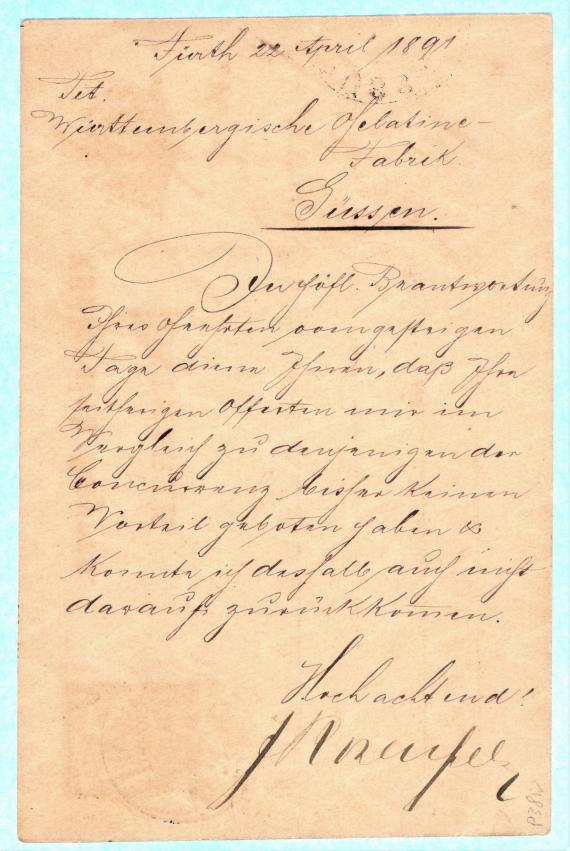 Fürth 22 April 1891
Tit.
Württembergische Gelatine-
Fabrik.
Güssen.
In höfl. Beantwortung
Ihres Geehrten vom gestrigen
Tage diene Ihnen, daß Ihre
seitherigen Offerten mir im
Vergleich zu denjenigen der
Concurrenz bisher keinen
Vorteil geboten haben &
konnte ich deshalb auch nicht
darauf zurückkom̅en.
Hochachtend!
P38W